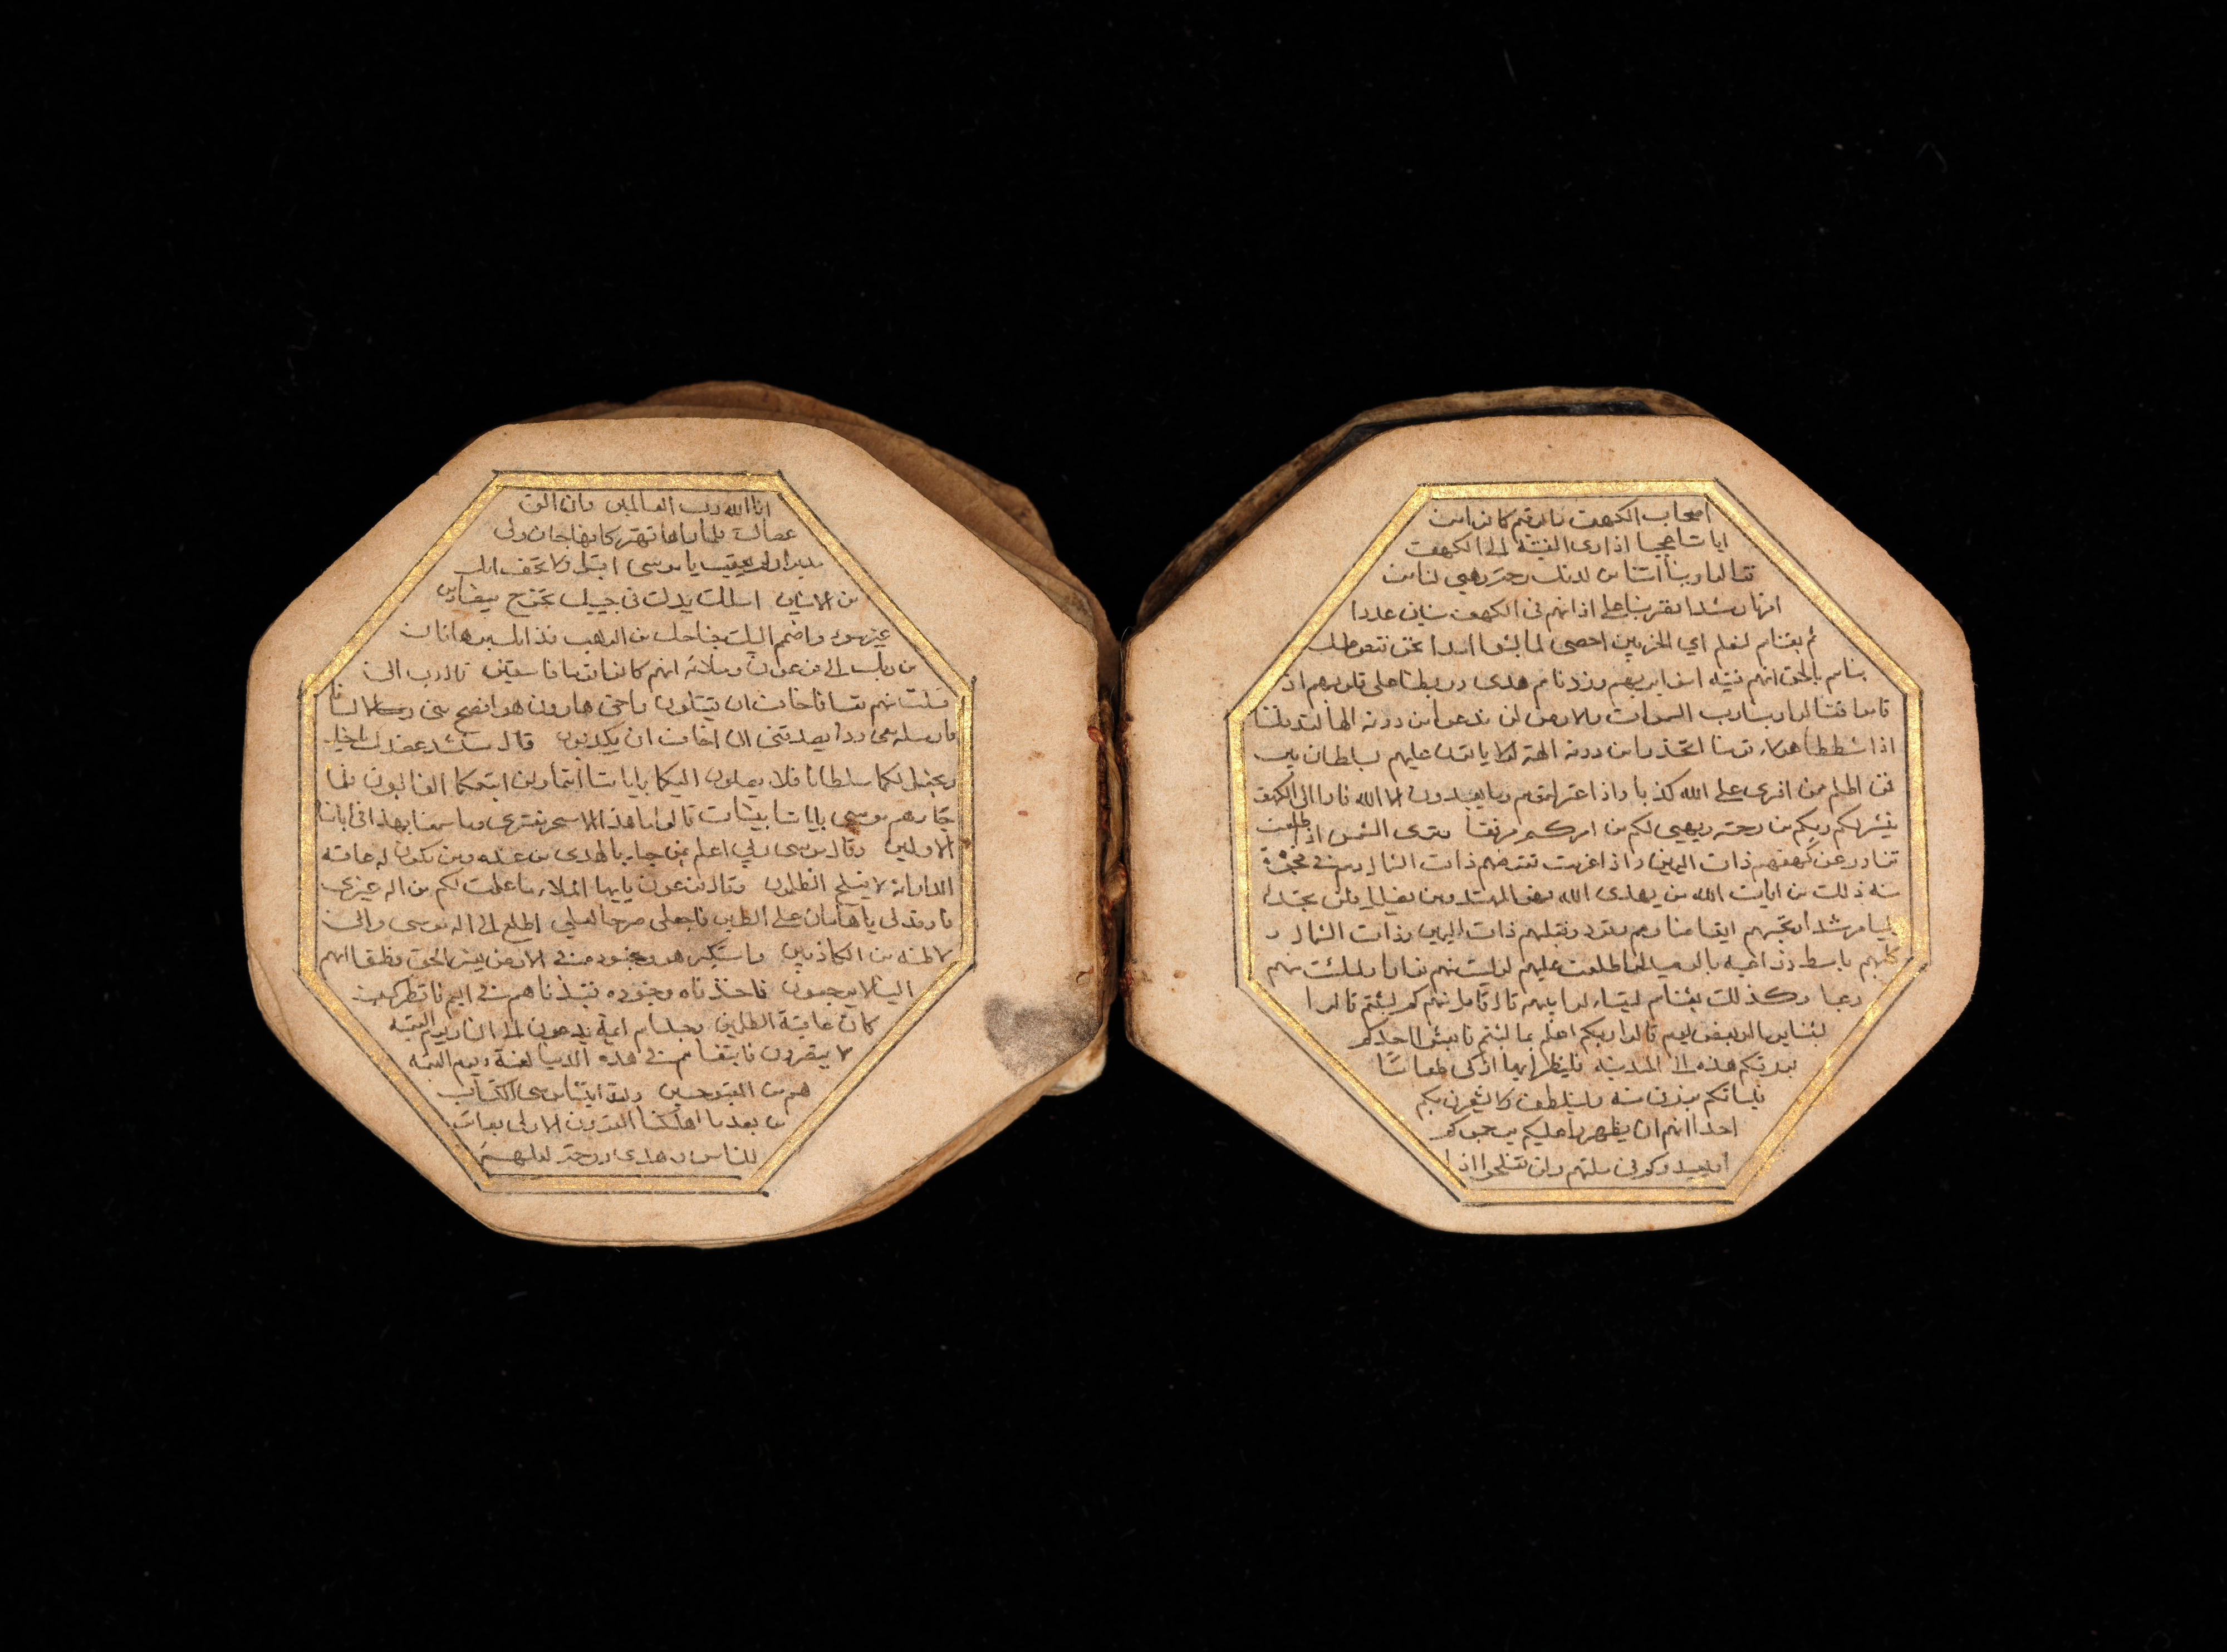 اصحاب الكهف والرقيم كانوا من
اياتنا عجبا اذ اوى الفتية الى الكهف
فقالوا ربنا آتنا من لدنك رحمة وهيي لنا من
امرنا رشدا فضربنا على اذانهم فى الكهف سنين عددا
ثم بعثناهم لنعلم اي الحزبين احصى لما لبثوا امدا نحن نقص عليك
نباهم بالحق انهم فتية امنوا بربهم وزدناهم هدى وربطنا على قلوبهم اذ
قاموا فقالوا ربنا رب السموات والارض لن ندعوا من دونه الها لقد قلنا
اذا شططا هولاء قومنا اتخذوا من دونه الهة لولا ياتون عليهم بسلطان بين
فمن اظلم ممن افترى على الله كذبا واذ اعتزلتموهم وما يعبدون الا الله فاووا الى الكهف
ينشر لكم ربكم من رحمته ويهيي لكم من امركم مرفقا وترى الشمس اذا طلعت
تزاور عن كهفهم ذات اليمين واذا غربت تقرضهم ذات الشمال وهم فى فجوة
منه ذلك من ايات الله من يهدى الله فهو المهتد ومن يضلل فلن تجد له
وليا مرشدا وتحسبهم ايقاظا وهم رقود ونقلبهم ذات اليمين وذات الشمال و
كلبهم باسط ذراعيه بالوصيد لو اطلعت عليهم لوليت منهم فرارا ولملئت منهم
رعبا وكذلك بعثناهم ليتساءلوا بينهم قال قائل منهم كم لبثتم قالوا
لبثنا يوما او بعض يوم قالوا ربكم اعلم بما لبثتم فابعثوا احدكم
بورقكم هذه الى المدينة فلينظر ايها ازكى طعاما
فلياتكم برزق منه وليتلطف ولا يشعرن بكم
احدا انهم ان يظهروا عليكم يرجموكم
او يعيدوكم فى ملتهم ولن تفلحوا اذا
انا الله رب العالمين وان الق
عصاك فلما راها تهتز كانها جان ولى
مدبرا ولم يعقب يا موسى اقبل ولا تخف انك
من الامنين اسلك يدك فى جيبك تخرج بيضاء من
غير سوء واضمم اليك جناحك من الرهب فذانك برهانان
من ربك الى فرعون وملائه انهم كانوا قوما فاسقين قال رب انى
قتلت منهم نفسا فاخاف ان يقتلون واخى هارون هو افصح منى لسانا
فارسله معى ردا يصدقنى انى اخاف ان يكذبون قال سنشد عضدك باخيك
ونجعل لكما سلطانا فلا يصلون اليكما باياتنا انتما ومن اتبعكما الغالبون فلما
جاءهم موسى باياتنا بينات قالوا ما هذا الا سحر مفترى وما سمعنا بهذا فى ابائنا
الاولين وقال موسى ربي اعلم بمن جاء بالهدى من عنده ومن تكون له عاقبة
الدار انه لا يفلح الظلمون وقال فرعون يايها الملاء ما علمت لكم من اله غيرى
فاوقد لى يا هامان على الطين فاجعل لى صرحا لعلي اطلع الى اله موسى وانى
لاظنه من الكاذبين واستكبر هو وجنوده فى الارض بغير الحق وظنوا انهم
الينا لا يرجعون فاخذناه وجنوده فنبذناهم فى اليم فانظر كيف
كان عاقبة الظلمين وجعلناهم ايمة يدعون الى النار ويوم القيمة
لا ينصرون واتبعناهم فى هذه الدنيا لعنة ويوم القيمة
هم من المقبوحين ولقد اتينا موسى الكتاب
من بعد ما اهلكنا القرون الاولى بصائر
للناس وهدى ورحمة لعلهم